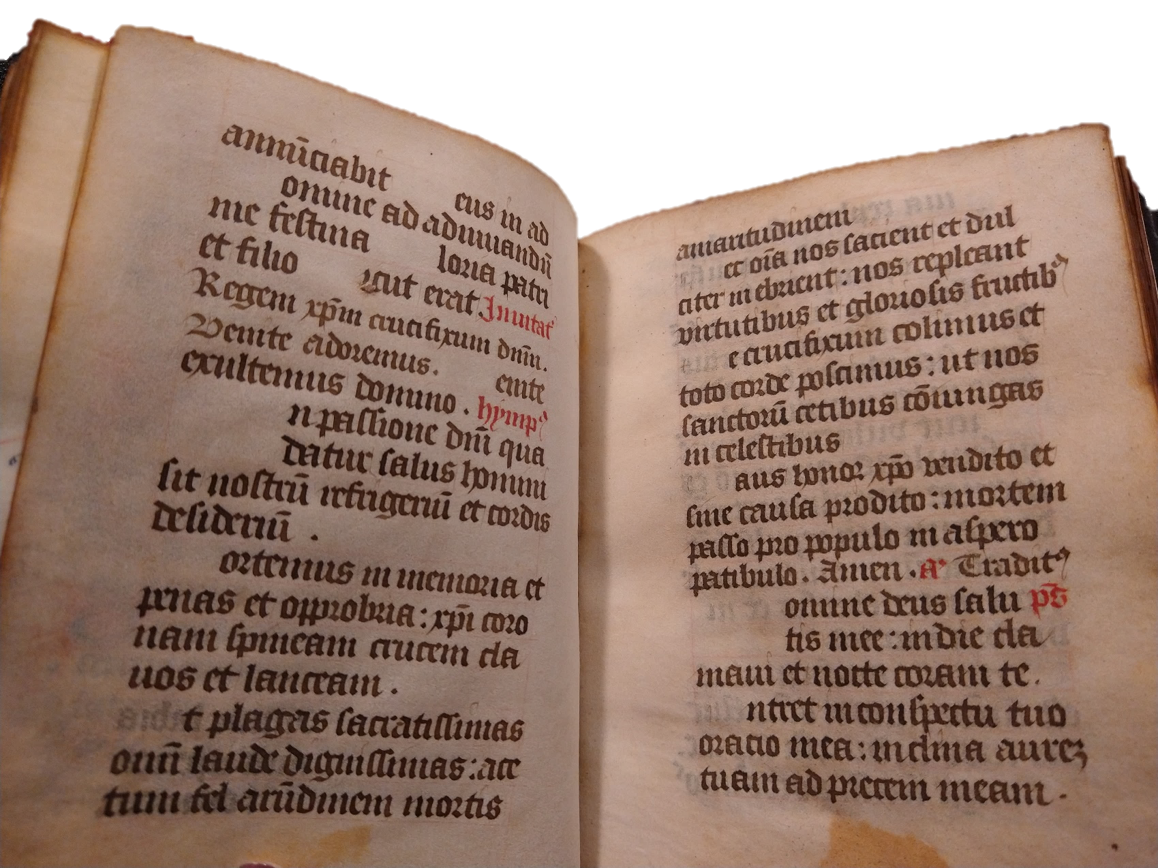 annūciabit eus in ad
omine ad adiuuandū
me festina loria patri
et filio icut erat Inuitat᷒
Regem xp̄m crucifixum dnm̄.
Venite adoremus. enite
exultemus domino. hymp᷒
n passione dn̄i qua
datur salus homini
sit nostrū refrigeriū et cordis
desideriū.
ortemus in memoria et
penas et opprobria: xp̄i coro
nam spineam crucem cla
uos et lanceam.
t plagas sacratissimas
omn̄i laude dignissimas: ace
tum fel arūdinem mortis
amaritudinem
ec oīa nos sacient et dul
citer inebrient: nos repleant
virtutibus et gloriosis fructib᷒
e crucifixum colimus et
toto corde poscimus: ut nos
sanctorū cetibus cōiungas
in celestibus
aus honor xp̄o vendito et
sine causa prodito: mortem
passo pro populo in aspero
patibulo. Amen. a᷒ Tradit᷒
omine deus salu ps̄
tis mee: in die cla
maui et nocte coram te.
ntret in conspectu tuo
oracio mea: inclina aureꝫ
tuam ad precem meam.